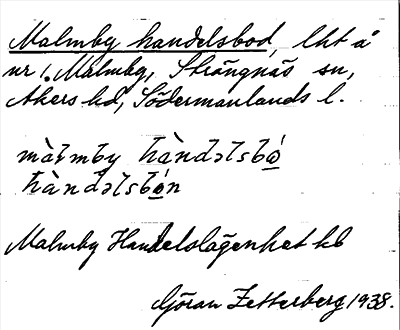 Malmby handelsbod, lht å
nr 1. Malmby, Strängnäs sn,
Åkers hd, Södermanlands l.
màɬmby hàndəɬsbó̲
hàndəɬsbó̲n
Malmby Handelslägenhet kb
Göran Zetterberg 1938.